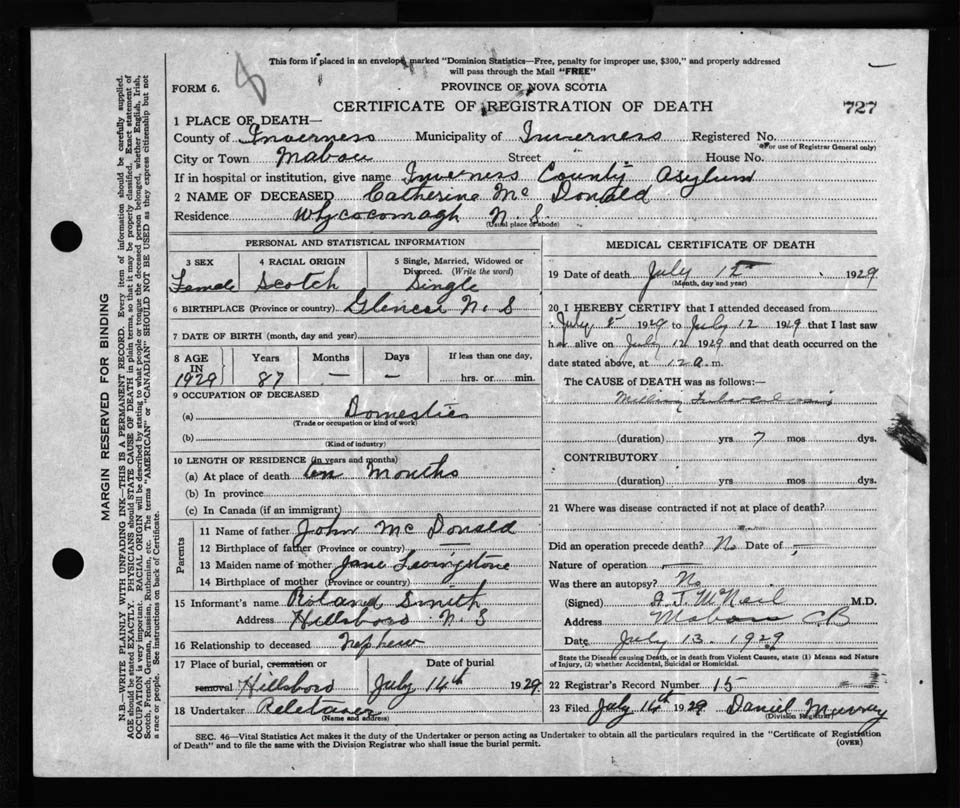 This form if placed in an envelope, marked "Dominion Statistics—Free, penalty for improper use, $300," and properly addressed
will pass through the Mail "FREE"
FORM 6.
PROVINCE OF NOVA SCOTIA
CERTIFICATE OF REGISTRATION OF DEATH
727
1 PLACE OF DEATH—
County of Inverness Municipality of Inverness Registered No.
(For use of Registrar General only)
City or Town Mabou Street " House No.
If in hospital or institution, give name Inverness County Asylum
2 NAME OF DECEASED Catherine Mc Donald
Residence Whycocomagh N. S.
(Usual place of abode)
PERSONAL AND STATISTICAL INFORMATION
3 SEX 4 RACIAL ORIGIN 5 Single, Married, Widowed or
Divorced. (Write the word)
Female Scotch Single
6 BIRTHPLACE (Province or country) N. S
7 DATE OF BIRTH (month, day and year)
8 AGE Years Months Days If less than one day,
IN
1929 87 — — hrs. or min.
9 OCCUPATION OF DECEASED
(a) Domestic
(Trade or occupation or kind of work)
(b)
(Kind of industry)
10 LENGTH OF RESIDENCE (in years and months)
(a) At place of death ten Months
(b) In province
(c) In Canada (if an immigrant)
Parents
11 Name of father John Mc Donald
12 Birthplace of father (Province or country) —
13 Maiden name of mother Jane Livingstone
14 Birthplace of mother (Province or country)
15 Informant's name Roland Smith
Address Hillsboro N. S
16 Relationship to deceased Nephew
17 Place of burial, cremation or Date of burial
removal Hillsboro July 14th 1929
18 Undertaker
(Name and address)
MEDICAL CERTIFICATE OF DEATH
19 Date of death July 1929
(Month, day and year)
20 I HEREBY CERTIFY that I attended deceased from
July 1929 to July 12 1929 that I last saw
her alive on July 12 1929 and that death occurred on the
date stated above, at 12 a. m.
The CAUSE OF DEATH was as follows:—
(duration) yrs 7 mos dys.
CONTRIBUTORY
(duration) yrs. mos. dys.
21 Where was disease contracted if not at place of death?
Did an operation precede death? No Date of —
Nature of operation —
Was there an autopsy? No
(Signed) McNeil M.D.
Address Mabou C B
Date July 13. 1929
State the Disease causing Death, or in death from Violent Causes, state (1) Means and Nature
of Injury, (2) whether Accidental, Suicidal or Homicidal.
22 Registrar's Record Number 15
23 Filed July 14th 1929 Daniel Murray
(Division Registrar)
SEC. 46—Vital Statistics Act makes it the duty of the Undertaker or person acting as Undertaker to obtain all the particulars required in the "Certificate of Registration
of Death" and to file the same with the Division Registrar who shall issue the burial permit.
(OVER)
MARGIN RESERVED FOR BINDING
N.B.—WRITE PLAINLY WITH UNFADING INK—THIS IS A PERMANENT RECORD. Every item of information should be carefully supplied.
AGE should be stated EXACTLY. PHYSICIANS should STATE CAUSE OF DEATH in plain terms, so that it may be properly classified. Exact statement of
OCCUPATION is very important. RACIAL ORIGIN will be described by stating to what people or tongue the deceased person belonged, whether English, Irish,
Scotch, French, German, Russian, Ruthenian, etc. The terms "AMERICAN" or "CANADIAN" SHOULD NOT BE USED as they express citizenship but not
a race or people. See instructions on back of Certificate.